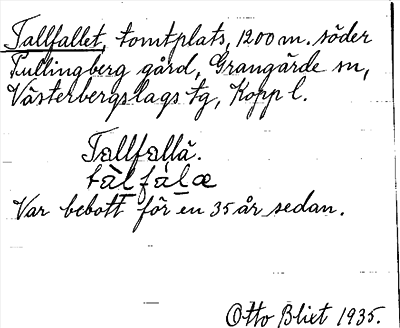 Tallfallet, tomtplats, 1200 m. söder
Tullingberg gård, Grangärde sn,
Västerbergslags tg, Kopp l.
Tallfallä.
tàlfálæ
Var bebott för en 35 år sedan.
Otto Blixt 1935.